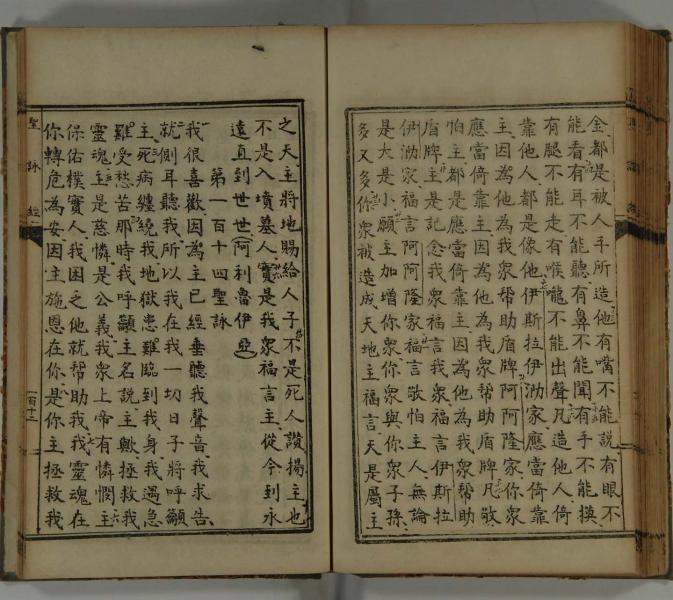 金都是被人手所造他有嘴不能說有眼不
能看有耳不能聽有鼻不能聞有手不能摸
有腿不能走有喉嚨不能出聲凡造他人倚
靠他人都是像他伊斯拉伊泐家應當倚靠
主因為他為我衆幫助盾牌阿阿隆家你衆
應當倚靠主因為他為我衆幫助盾牌凡敬
怕主都是應當倚靠主因為他為我衆幫助
盾牌主是記念我衆福言我衆福言伊斯拉
伊泐家福言阿阿隆家福言敬怕主人無論
是大是小願主加增你衆你衆與你衆子孫
多又多你衆被造成天地主福言天是屬主
之天主將地賜給人子不是死人讚揚主也
不是入墳墓人實是我衆福言主從今到永
遠直到世世阿利魯伊亞
第一百十四聖詠
我很喜歡因為主已經垂聽我聲音我求告
就側耳聽我所以我在我一切日子將呼籲
主死病纏繞我地獄患難臨到我身我遇急
難受愁苦那時我呼籲主名說主歟拯救我
靈魂主是慈憐是公義我衆上帝有憐憫主
保佑樸實人我困乏他就幫助我我靈魂在
你轉危為安因主施恩在你是你主拯救我
聖詠經
一百十三